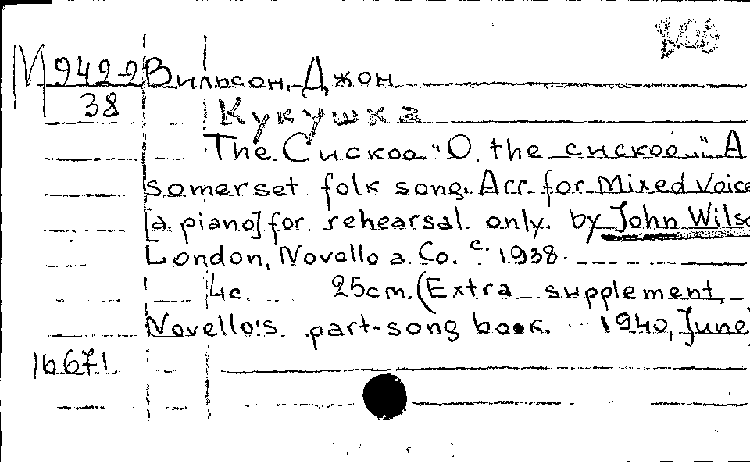 М 942-2 Вильсон, Джон
38 Кукушка
The Cuckoo "O, the cuckoo" A
somerset folk song. Arr. for Mixed Voice
[a piano] for rehearsal only. by John Wils
London, Novello a. Co. c. 1938.
4c. 25cm. (Extra supplement,
Novello's part-song book. 1940, June)
16671